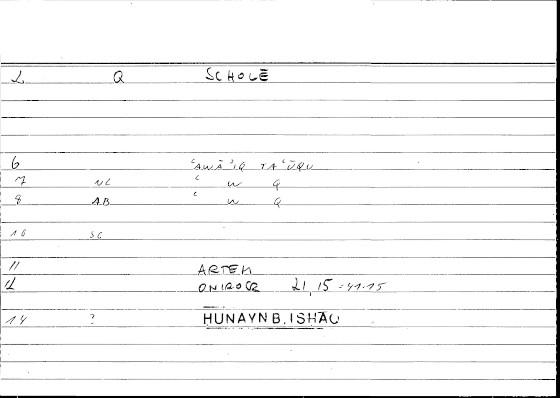 L Q SCHOLĒ
6 ʿAWĀʾIQ TAʿŪQU
7 NL ʿ W Q
8 AB ʿ W Q
10 SG
11 ARTEM
12 ONIROCR 21,15 = 41.15
14 ? HUNAYN B. ISHĀQ